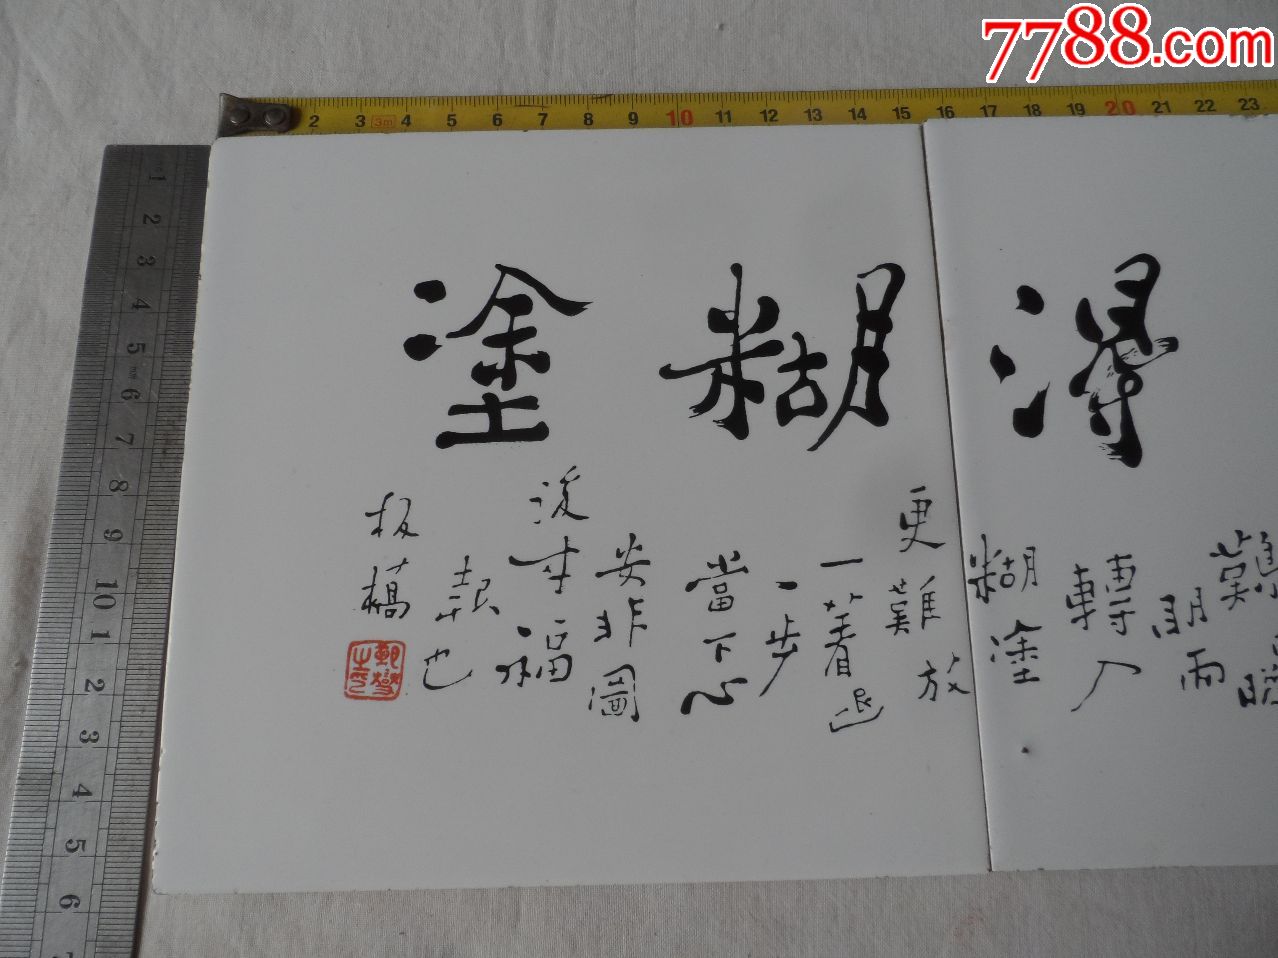 7788.com
2 3 3m 4 5 6 7 8 9 10 11 12 13 14 15 16 17 18 19 20 21 22 23
1 2 3 4 5 6 7 8 9 10 1 2 3 4 5 6
得糊塗
難
明而
轉入
糊塗
更難放
一著退
一步
當下心
安非圖
後來福
報也
板橋